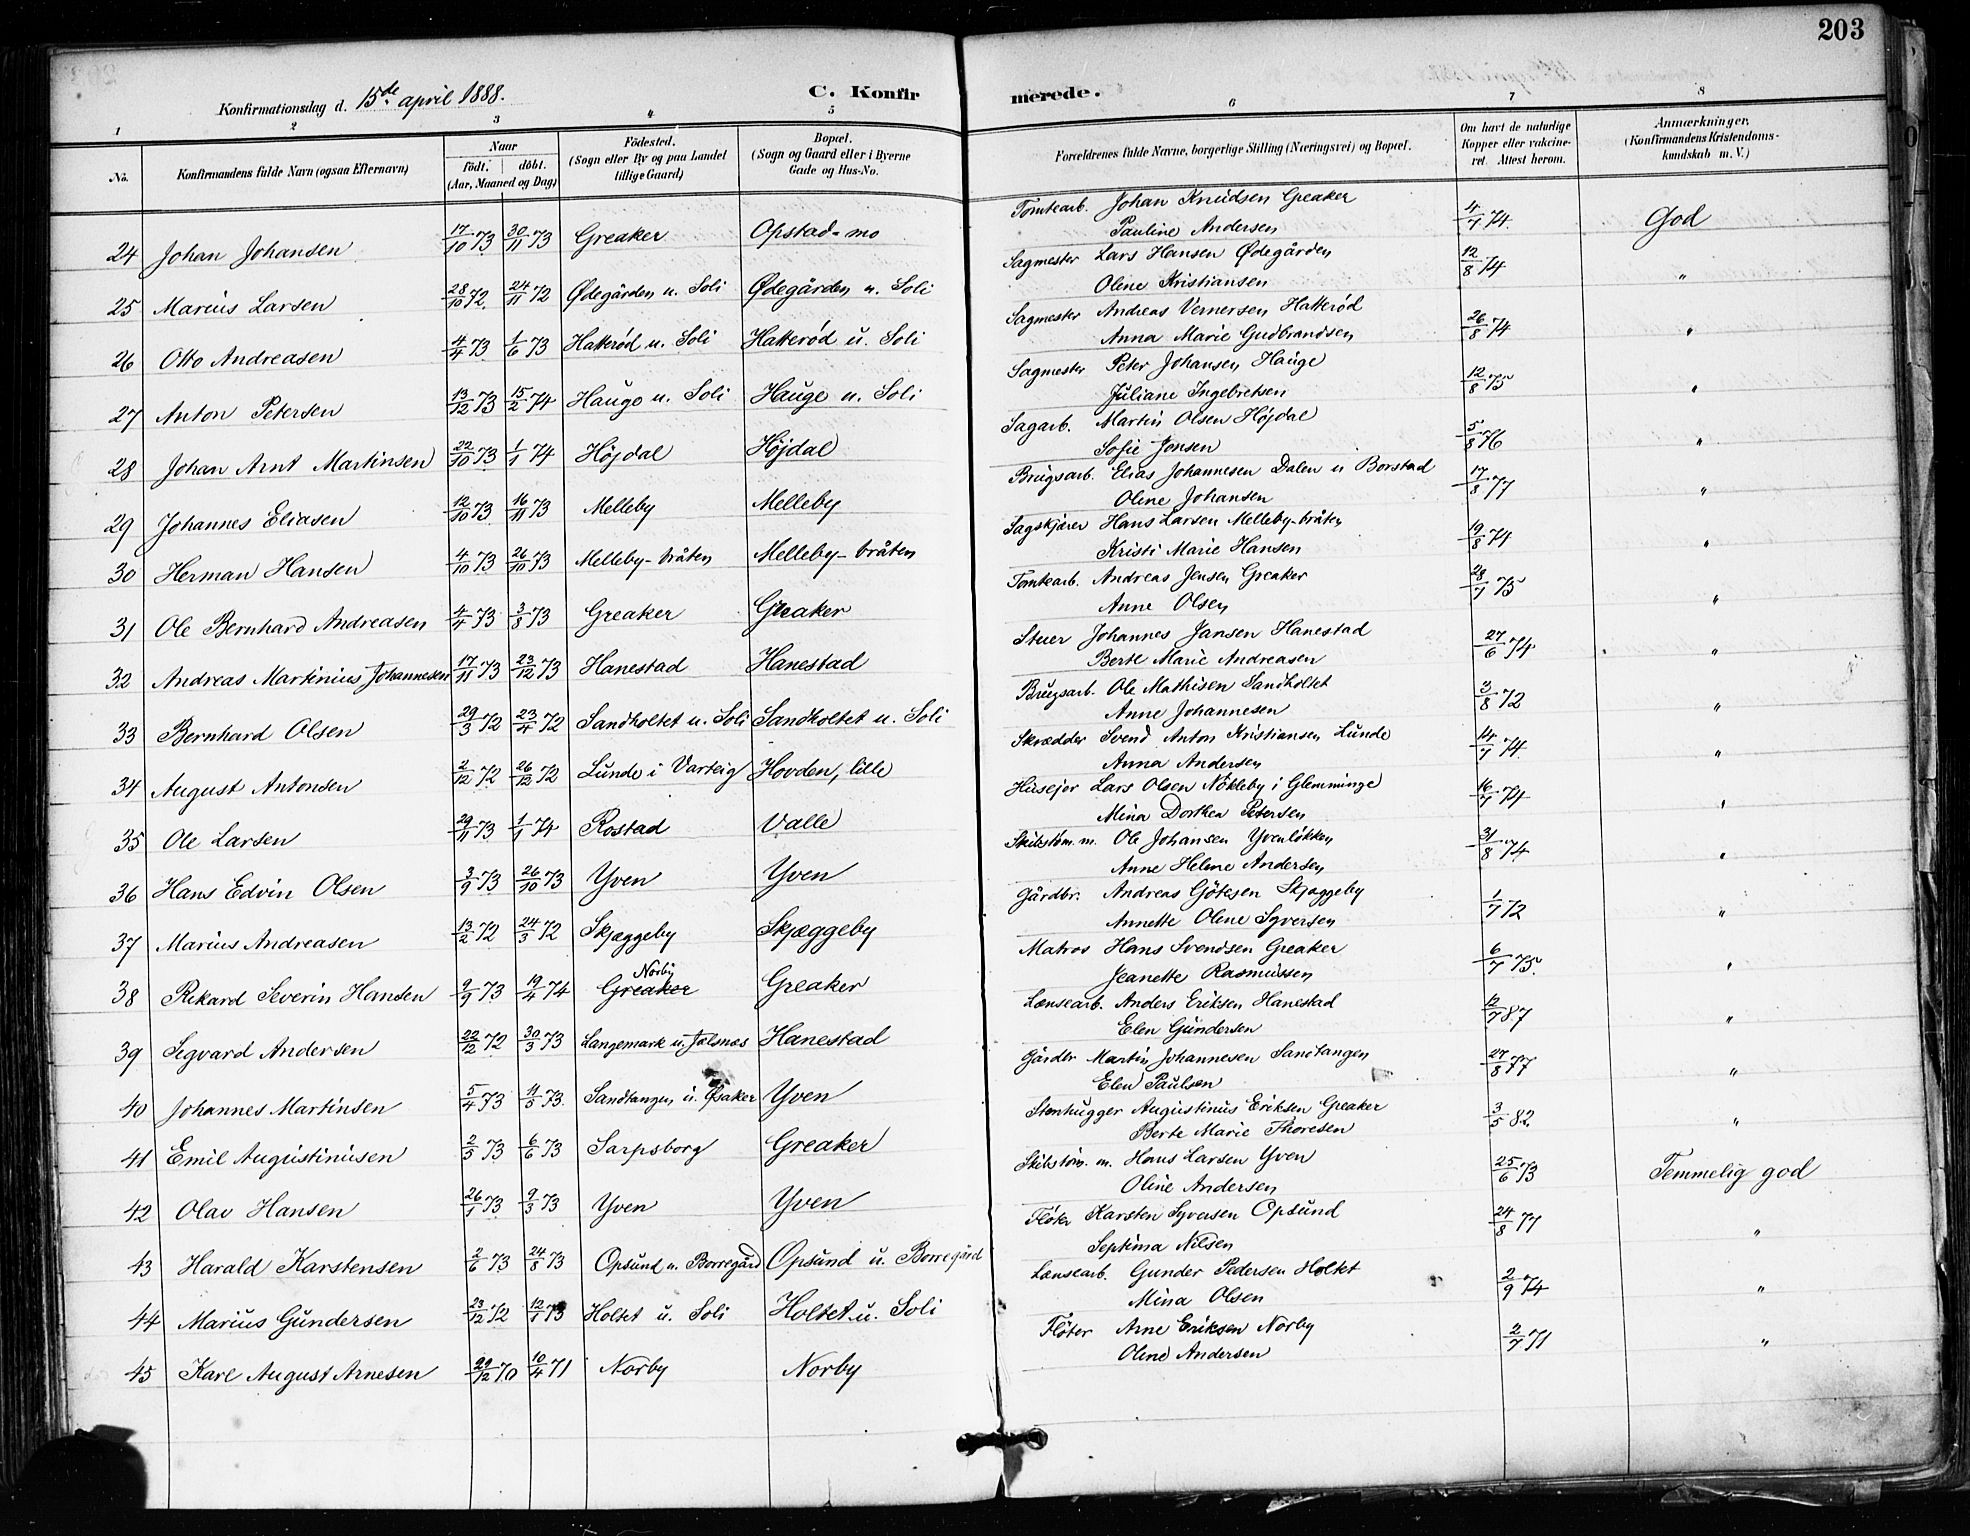 203
Konfirmationsdag d. 15de april 1888.
C. Konfirmerede.
1 2 3 4 5 6 7 8
No. Konfirmandens fulde Navn (ogsaa Efternavn) Naar født. døbt. (Aar, Maaned og Dag) Fødested. (Sogn eller By og paa Landet tillige Gaard) Bopæl. (Sogn og Gaard eller i Byerne Gade og Hus-No. Forældrenes fulde Navne, borgerlige Stilling (Næringsvei) og Bopæl. Om havt de naturlige Kopper eller vakcineret. Attest herom. Anmærkninger, (Konfirmandens Kristendomskundskab m. V.)
24 Johan Johansen 17/10 73 30/11 73 Greaker Opstad-mo Tomtearb. Johan Knudsen Greaker 4/7 74. God
Pauline Andersen
25 Marius Larsen 28/10 72 24/11 72 Ødegården u. Soli Ødegården u. Soli Sagmester Lars Hansen Ødegården 12/8 74 "
Oline Kristiansen
26 Otto Andreasen 4/4 73 1/6 73 Hatterød u. Soli Hatterød u. Soli Sagmester Andreas Vernersen Hatterød 26/8 74 "
Anna Marie Gudbrandsen
27 Anton Petersen 13/12 73 15/2 74 Hauge u. Soli Hauge u. Soli Sagmester Peter Johansen Hauge 12/8 75 "
Juliane Ingebretsen
28 Johan Arnt Martinsen 22/10 73 1/1 74 Højdal Højdal Sagarb. Martin Olsen Højdal 5/8 76 "
Sofie Jensen
29 Johannes Eliasen 12/10 73 16/11 73 Melleby Melleby Brugsarb. Elias Johannesen Dalen u Borstad 17/8 77 "
Oline Johansen
30 Herman Hansen 4/10 73 26/10 73 Melleby-bråten Melleby-bråten Sagskjærer Hans Larsen Melleby-bråten 19/8 74 "
Kristi Marie Hansen
31 Ole Bernhard Andreasen 4/4 73 3/8 73 Greaker Greaker Tomtearb. Andreas Jensen Greaker 28/7 75 "
Anne Olsen
32 Andreas Martinius Johannesen 17/11 73 23/12 73 Hanestad Hanestad Stuer Johannes Jansen Hanestad 27/6 74 "
Berte Marie Andreasen
33 Bernhard Olsen 29/3 72 23/4 72 Sandholtet u. Soli Sandholtet u. Soli Brugsarb. Ole Mathisen Sandholtet 3/8 72 "
Anne Johannesen
34 August Antonsen 2/12 72 26/12 72 Lunde i Varteig Hovden, lille Skrædder Svend Anton Kristiansen Lunde 14/7 74. "
Anna Andersen
35 Ole Larsen 29/11 73 1/1 74 Rostad Valle Husejer Lars Olsen Nökleby i Glemminge 16/7 74 "
Mina Dorthea Petersen
36 Hans Edvin Olsen 3/9 73 26/10 73 Yven Yven Skibstøm. m. Ole Johansen Yvenløkken 31/8 74 "
Anne Helene Andersen
37 Marius Andreasen 13/2 72 24/3 72 Skjæggeby Skjæggeby Gårdbr. Andreas Götesen Skjæggeby 1/7 72 "
Annette Oline Syversen
38 Rikard Severin Hansen 9/9 73 19/4 74 Greaker Norby Greaker Matros Hans Svendsen Greaker 6/7 75. "
Jeanette Rasmussen
39 Segvard Andersen 22/12 72 30/3 73 Langemark u. Jelsnes Hanestad Lænsearb. Anders Eriksen Hanestad 12/7 87 "
Elen Gundersen
40 Johannes Martinsen 5/4 73 4/5 73. Sandtangen u. Øsaker Yven Gårdbr Martin Johannesen Sandtangen 27/8 77 "
Elen Paulsen
41 Emil Augustinusen 2/5 73 6/6 73 Sarpsborg Greaker Stenhugger Augustinus Eriksen Greaker 3/5 82. "
Berte Marie Thoresen
42 Olav Hansen 26/1 73 9/3 73 Yven Yven Skibstøm. m. Hans Larsen Yven 25/6 73 Temmelig god
Oline Andersen
43 Harald Karstensen 2/6 73 24/8 73 Opsund u. Borregård Opsund u. Borregård Fløter Karsten Syversen Opsund 24/8 77 "
Septima Nilsen
44 Marius Gundersen 23/12 72 12/1 73 Holtet u. Soli Holtet u. Soli Lænsearb. Gunder Pedersen Holtet 2/9 74 "
Mina Olsen
45 Karl August Arnesen 29/12 70 10/4 71 Norby Norby Fløter Arne Eriksen Norby 2/7 71 "
Oline Andersen